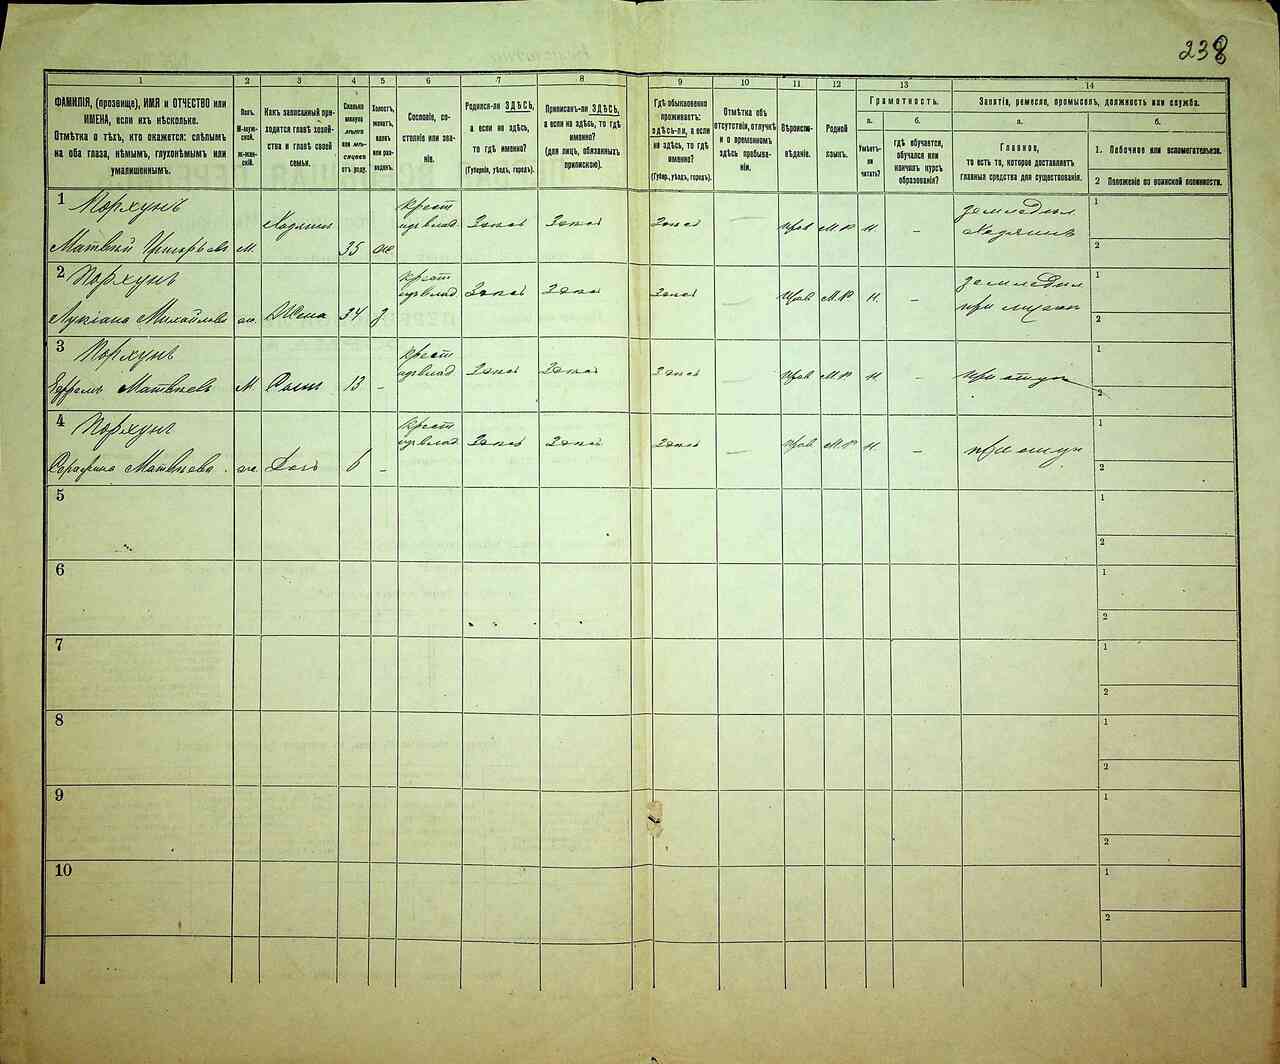 238
1 2 3 4 5 6 7 8 9 10 11 12 13 14
ФАМИЛІЯ, (прозвище), ИМЯ и ОТЧЕСТВО или ИМЕНА, если ихъ нѣсколько.
Отмѣтка о тѣхъ, кто окажется: слѣпымъ на оба глаза, нѣмымъ, глухонѣмымъ или умалишеннымъ.
Полъ.
М-муж-
ской.
ж-жен-
скій.
Какъ записанный при-
ходится главѣ хозяй-
ства и главѣ своей
семьи.
Сколько
минуло
лѣтъ
или мѣ-
сяцевъ
отъ роду.
Холостъ,
женатъ,
вдовъ
или раз-
веденъ.
Сословіе, со-
стояніе или зва-
ніе.
Родился-ли ЗДѢСЬ,
а если не здѣсь,
то гдѣ именно?
(Губернія, уѣздъ, городъ).
Приписанъ-ли ЗДѢСЬ,
а если не здѣсь, то гдѣ
именно?
(для лицъ, обязанныхъ
припискою).
Гдѣ обыкновенно
проживаетъ:
здѣсь-ли, а если
не здѣсь, то гдѣ
именно?
(Губер., уѣздъ, городъ).
Отмѣтка объ
отсутствіи, отлучкѣ
и о временномъ
здѣсь пребыва-
ніи.
Вѣроиспо-
вѣданіе.
Родной
языкъ.
Грамотность.
а.
Умѣетъ-
ли
читать?
б.
гдѣ обучается,
обучался или
кончилъ курсъ
образованія?
Занятіе, ремесло, промыселъ, должность или служба.
а.
Главное,
то есть то, которое доставляетъ
главныя средства для существованія.
б.
1. Побочное или вспомогательное.
2 Положеніе по воинской повинности.
1 Порхунъ
Матвѣй Григорьевъ М. Хозяинъ 35 же. Крест изъ влад Здесь Здесь Здесь — Прав М.Р Н. – земледѣл хозяинъ 1 2
2 Порхунъ
Михайлова ж. Жена 34 з. Крест изъ влад Здесь Здесь Здесь — Прав М.Р Н. – земледѣл при мужѣ 1 2
3 Порхунъ
Ефремъ Матвѣевъ М. Сынъ 13 – Крест изъ влад Здесь Здесь Здесь Прав М.Р Н. – при отцѣ 1 2
4 Порхунъ
Матвѣева ж. Дочь 6 – Крест изъ влад Здесь Здесь Здесь — Прав М.Р Н. – при отцѣ 1 2
5 1 2
6 1 2
7 1 2
8 1 2
9 1 2
10 1 2